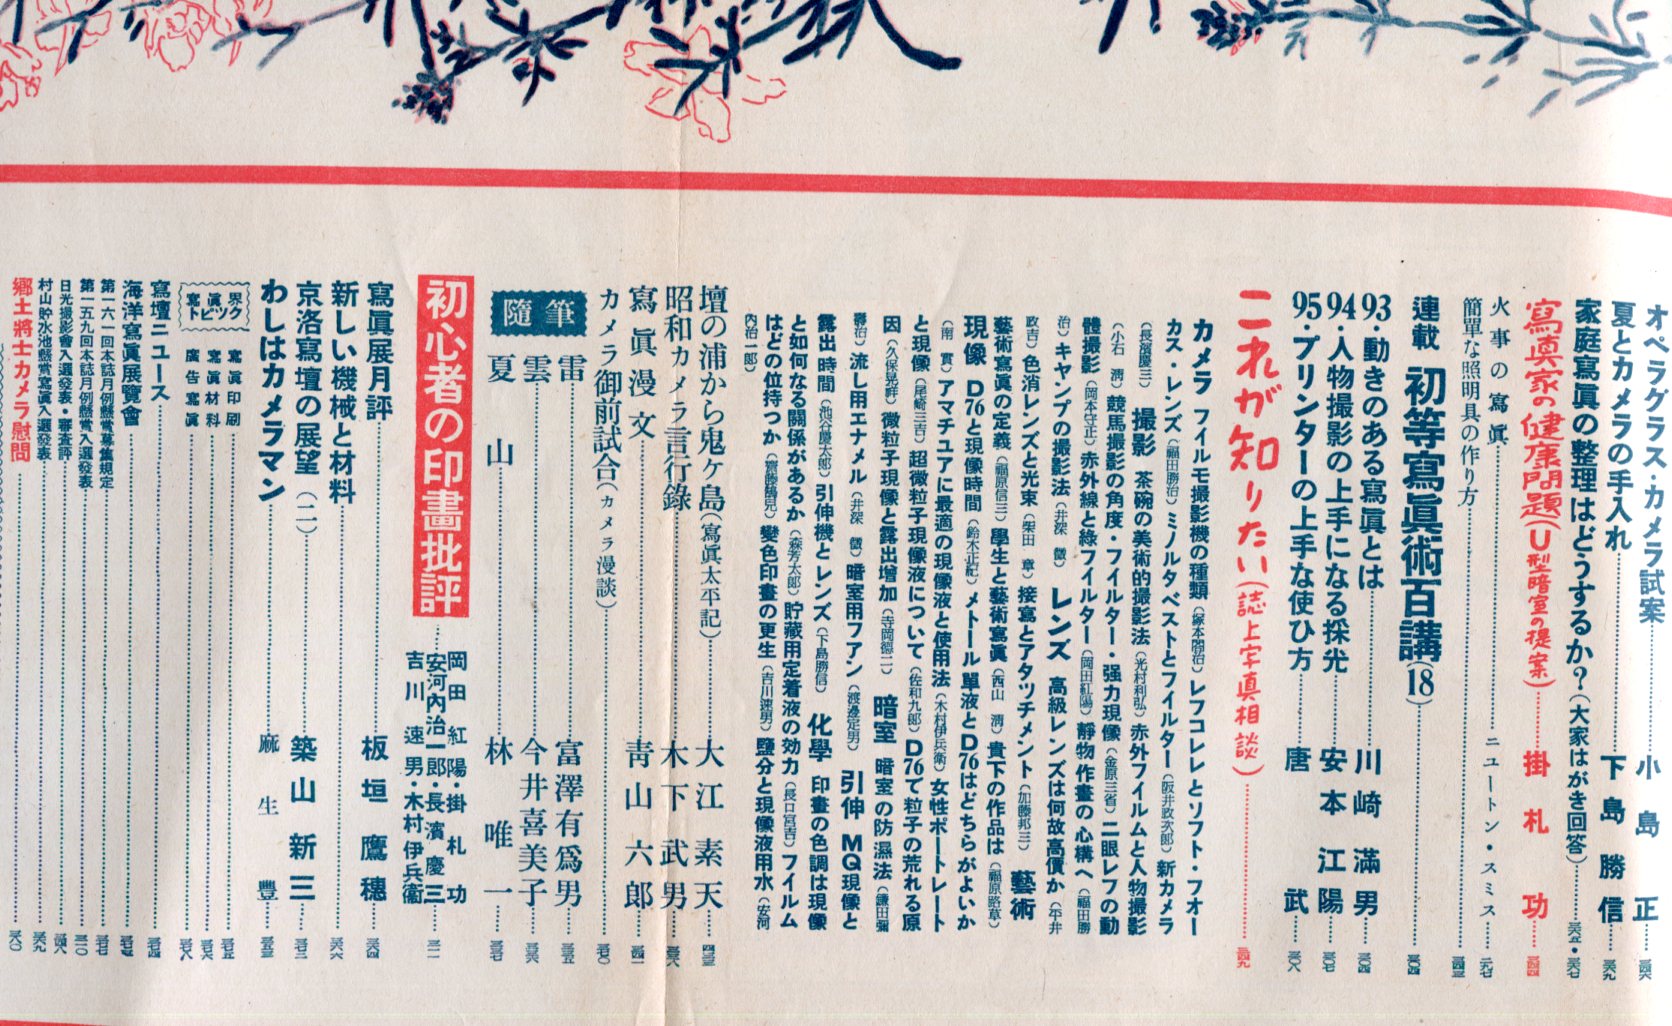 オペラグラス・カメラ試案………小島正……
夏とカメラの手入れ………下島勝信……
家庭寫眞の整理はどうするか？(大家はがき回答)……
寫眞家の健康問題(U型暗室の提案)……掛札功……
火事の寫眞………ニュートン・スミス……
簡單な照明具の作り方………
連載 初等寫眞術百講(18)………
93・動きのある寫眞とは………川崎滿男……
94・人物撮影の上手になる採光………安本江陽……
95・プリンターの上手な使ひ方………唐武……
これが知りたい(誌上字真相談)………
カメラ フイルモ撮影機の種類(塚本閤治) レフコレレとソフト・フオー
カス・レンズ(福田勝治) ミノルタ ベストとフイルター(阪井政次郎) 新カメラ
(長濱慶三) 撮影 茶碗の美術的撮影法(光村利弘) 赤外フイルムと人物撮影
(小石清) 競馬撮影の角度・フイルター・强力現像(金原三省) 二眼レフの動
體撮影(岡本守正) 赤外線と綠フイルター(岡田紅陽) 靜物作畫の心構へ(福田勝
治) キヤンプの撮影法(井深徵) レンズ 高級レンズは何故高價か(平井
政吉) 色消レンズと光束(柴田章) 接寫とアタツチメント(加藤邦三) 藝術
藝術寫眞の定義(福原信三) 學生と藝術寫眞(西山淸) 貴下の作品は(福原路草)
現像 D76と現像時間(鈴木正紀) メトール單液とD76はどちらがよいか
(南實) アマチユアに最適の現像液と使用法(木村伊兵衞) 女性ポートレート
と現像(尾崎三吉) 超微粒子現像液について(佐和九郎) D76で粒子の荒れる原
因(久保晃鮮) 微粒子現像と露出增加(寺岡德二) 暗室 暗室の防濕法(鎌田彌
壽治) 流し用エナメル(井深徵) 暗室用フアン(渡邊定男) 引伸 MQ現像と
露出時間(池谷慶太郎) 引伸機とレンズ(下島勝信) 化學 印畫の色調は現像
と如何なる關係があるか(森芳太郎) 貯藏用定着液の効力(長口宮吉) フイルム
はどの位持つか(齋藤鵠兒) 變色印畫の更生(吉川速男) 鹽分と現像液用水(安河
內治一郎)
壇の浦から鬼ヶ島(寫眞太平記)………大江素天……
昭和カメラ言行錄………木下武男
寫眞漫文………靑山六郎……
カメラ御前試合(カメラ漫談)………
隨筆
雷………富澤有爲男……
雲………今井喜美子……
夏山………林唯一……
初心者の印畫批評
岡田紅陽・掛札功
安河內治一郎・長濱慶三
吉川速男・木村伊兵衞
寫眞展月評………板垣鷹穗……
新しい機械と材料………
京洛寫壇の展望(二)………築山新三……
わしはカメラマン………麻生豊……
寫眞界トピツク
寫眞印刷………
寫眞材料………
廣告寫眞………
寫壇ニュース………
海洋寫眞展覽會………
第一六一回本誌月例懸賞募集規定………
第一五九回本誌月例懸賞入選發表………
日光撮影會入選發表・審査評………
村山貯水池懸賞寫眞入選發表………
鄕土將士カメラ慰問………